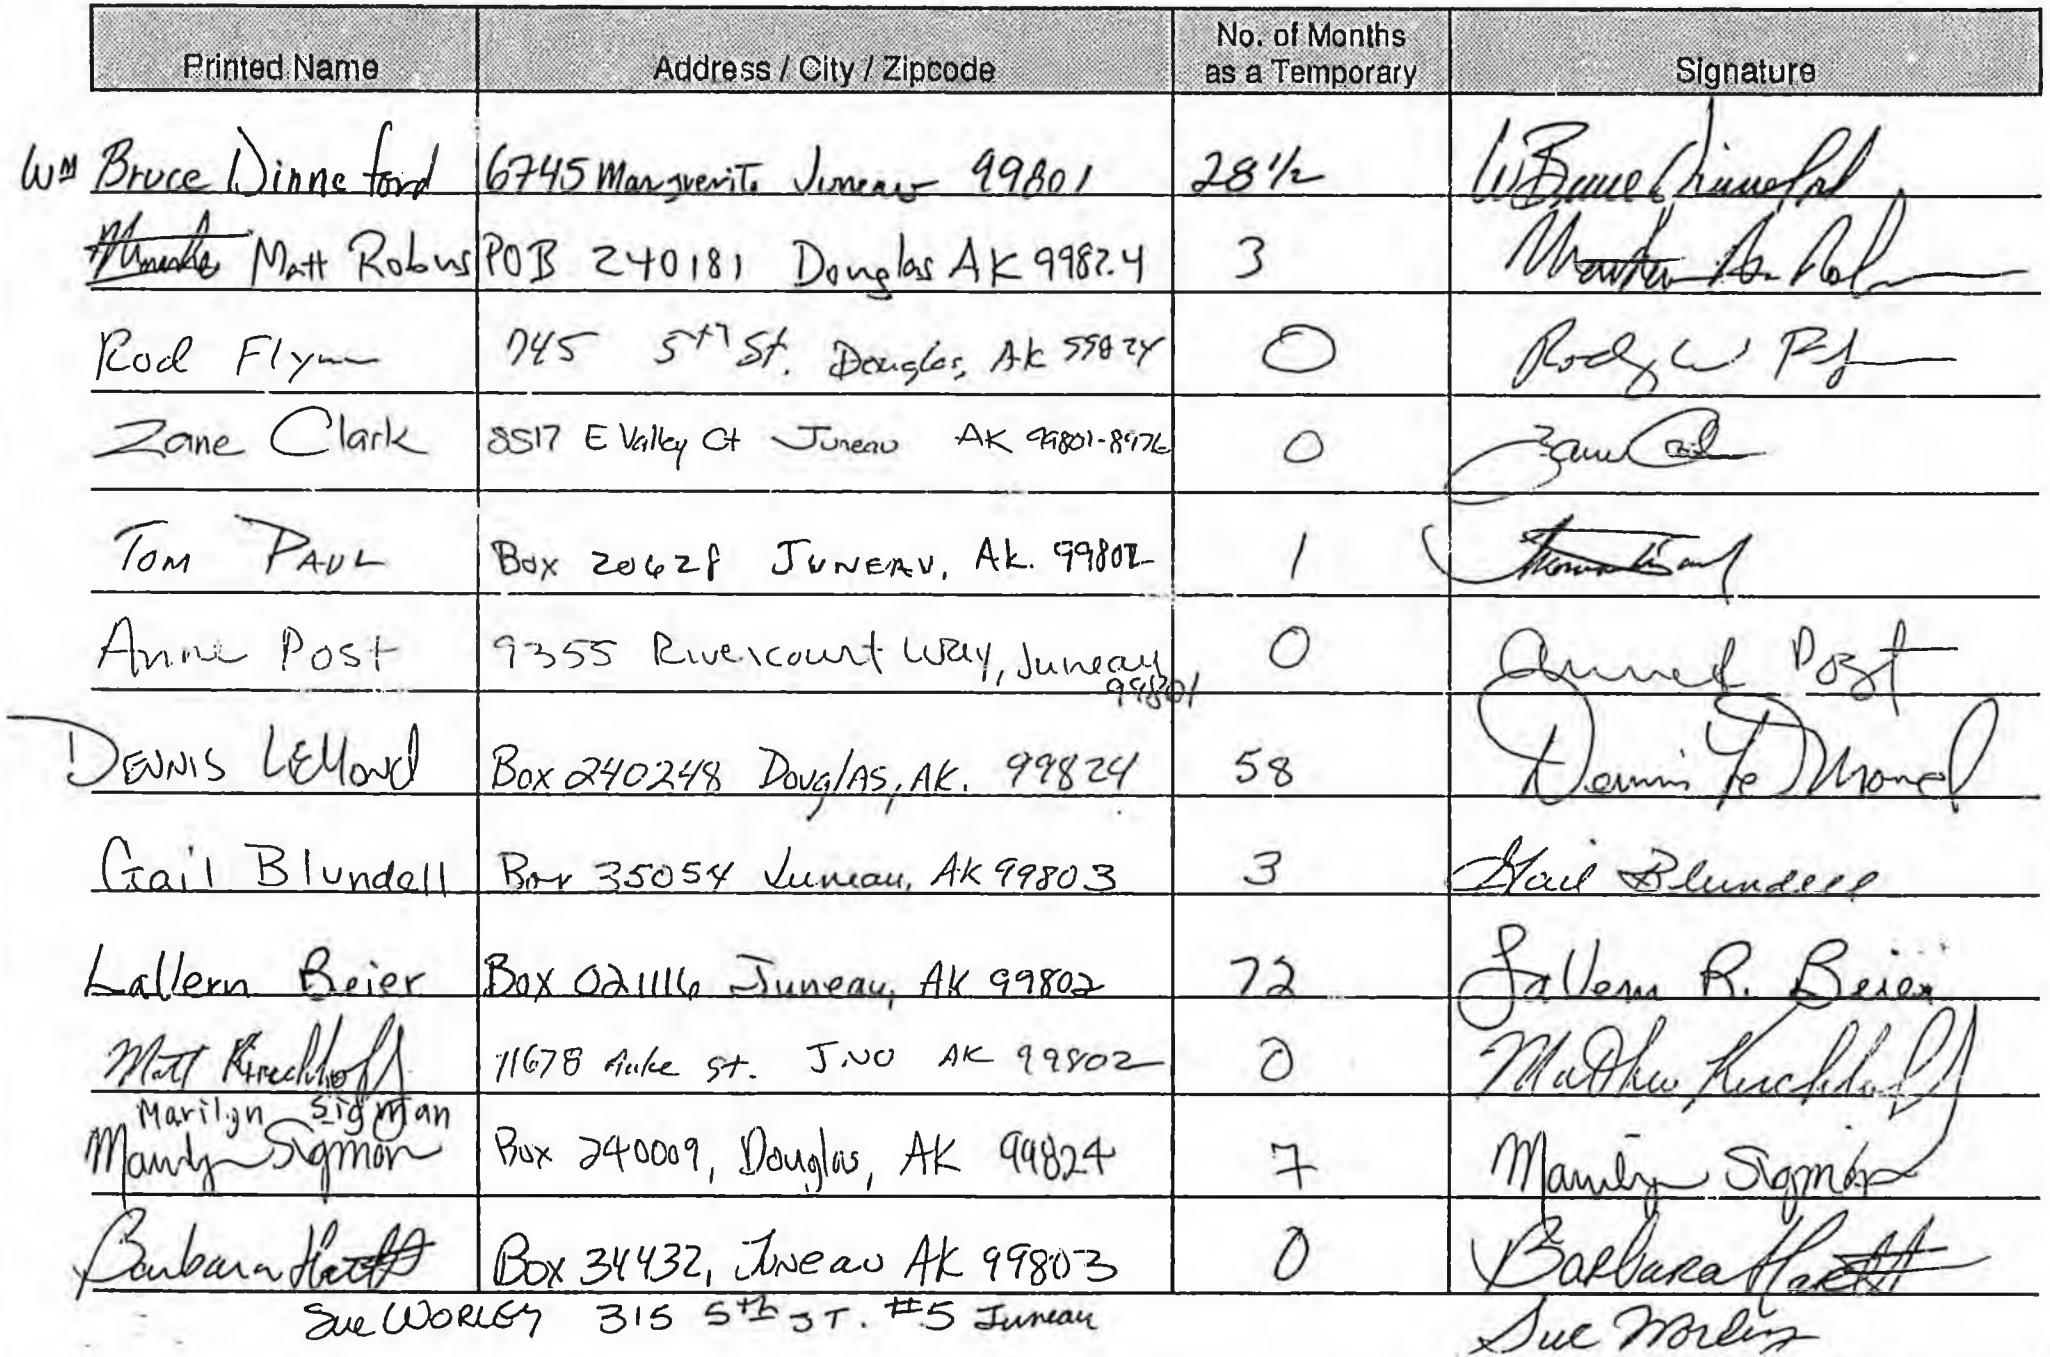 Printed Name Address / City / Zipcode No. of Months as a Temporary Signature
Wm Bruce Dinneford 6745 Marguerite Juneau 99801 28 1/2 W Bruce Dinneford
Matt Robus POB 240181 Douglas AK 99824 3
Rod Flynn 745 5th St. Douglas, AK 99824 0 Rodney W Fly
Zane Clark 8517 E Valley Ct Juneau AK 99801-8976 0 Zane Clark
Tom Paul Box 20628 Juneau, Ak. 99802 1 Thomas Paul
Anne Post 9355 Rivercourt Way, Juneau 99801 0 Anne Post
Dennis LeMond Box 240248 Douglas, AK. 99824 58 Dennis Le Mond
Gail Blundell Box 35054 Juneau, AK 99803 3 Gail Blundell
LaVern Beier Box 021116 Juneau, AK 99802 72 LaVern R. Beier
Matt Kirchhoff 11678 Auke St. JNO AK 99802 0 Matthew Kirchhoff
Marilyn Sigman
Marilyn Sigman Box 240009, Douglas, AK 99824 7 Marilyn Sigman
Barbara Hartt Box 34432, Juneau AK 99803 0 Barbara Hartt
Sue Worley 315 5th ST. #5 Juneau Sue Worley